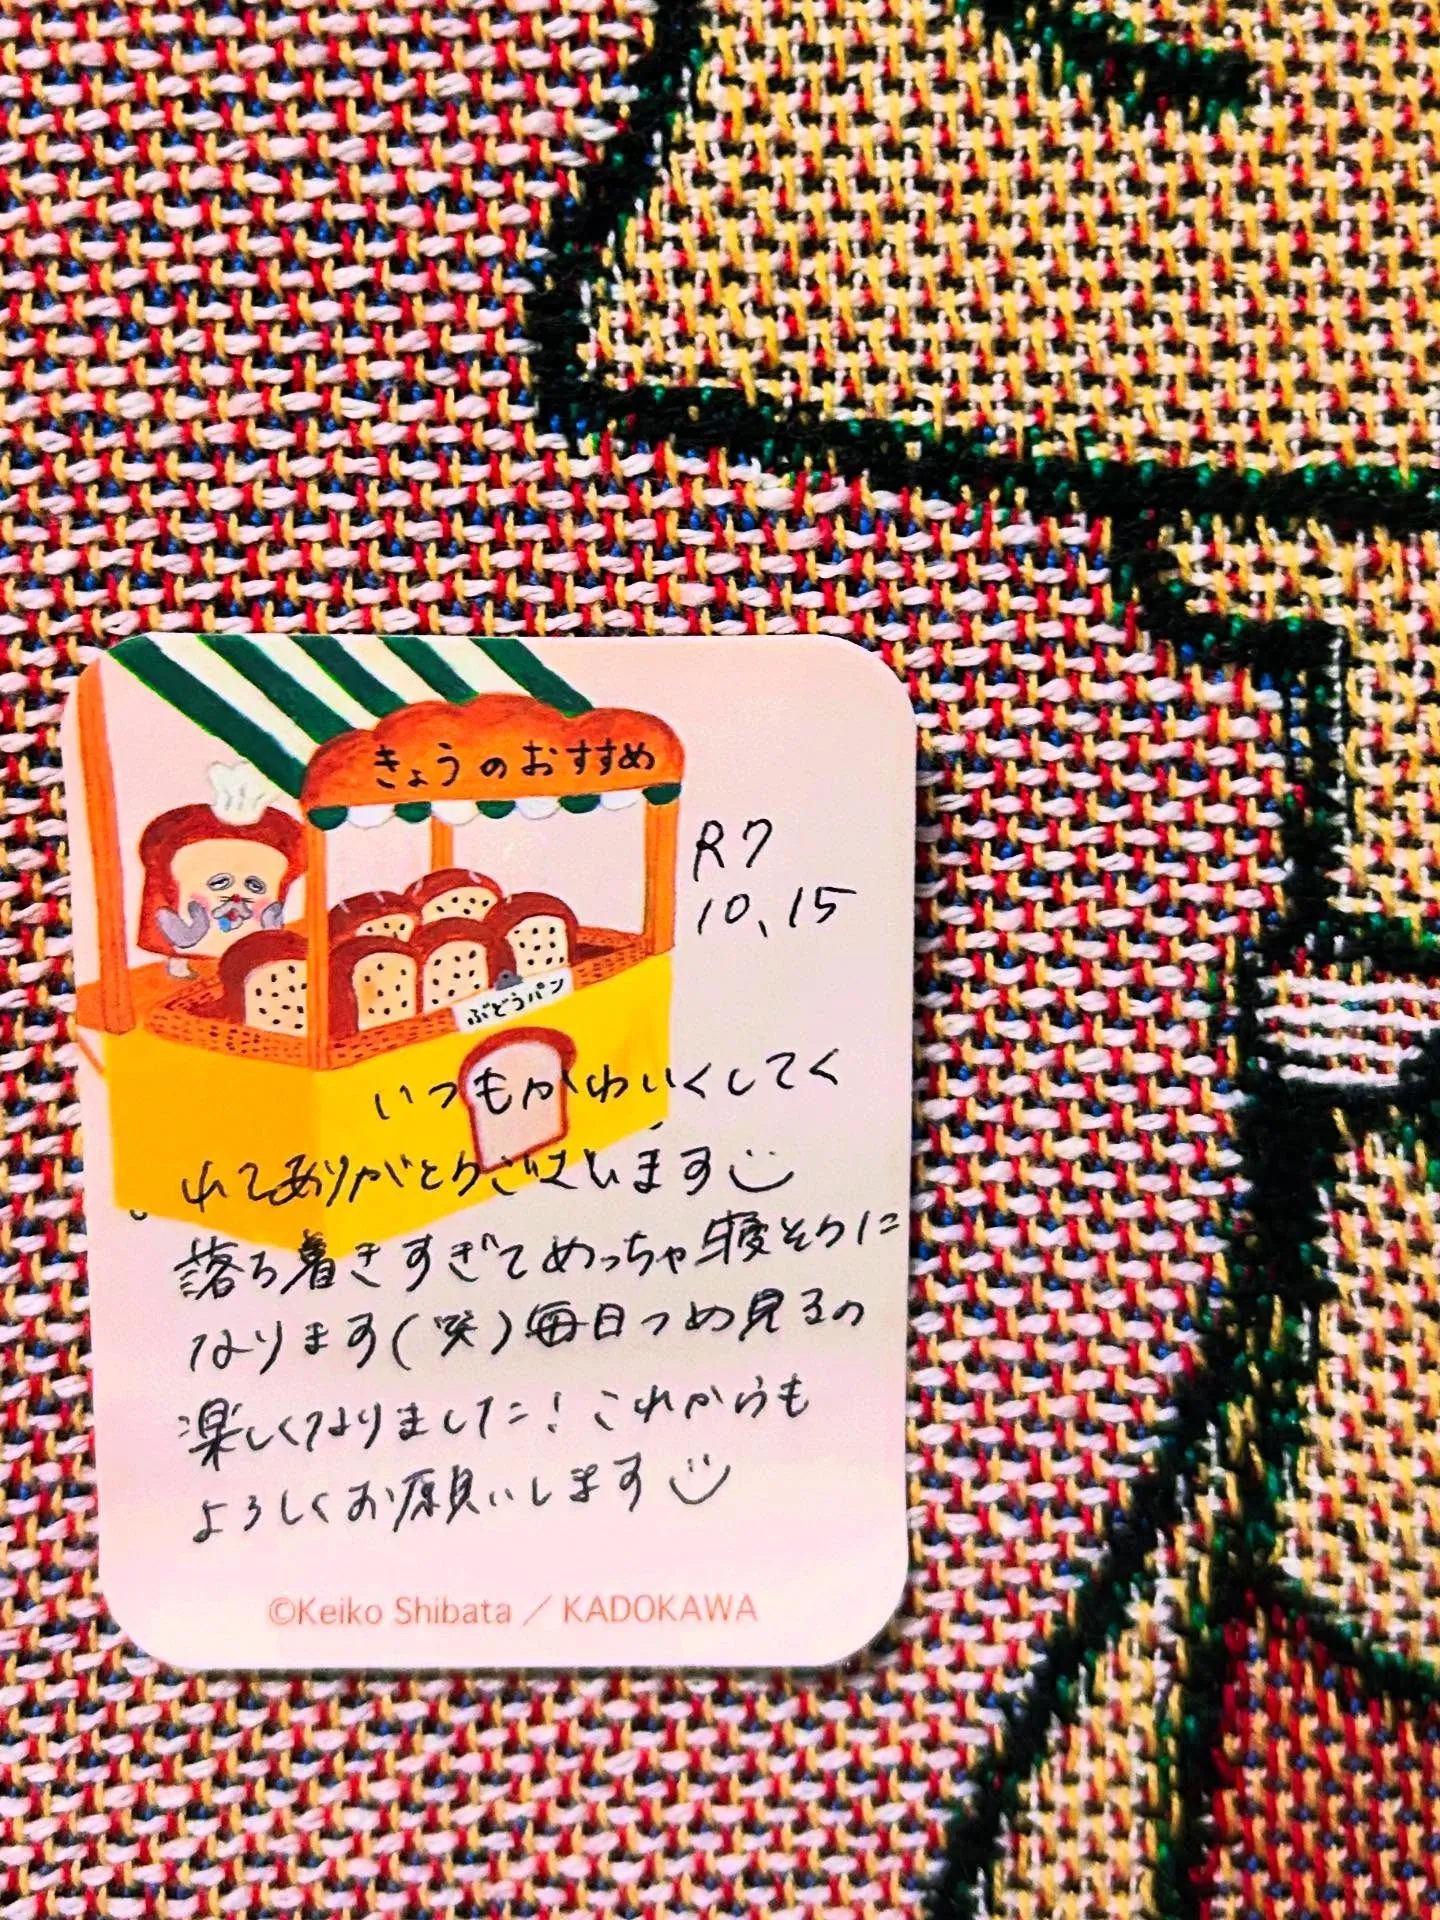 きょうのおすすめ
R7
10、15
ぶどうパン
いつもかわいくしてく
れてありがとうございます
落ち着きすぎてめっちゃ寝そうに
なります(笑)毎日つめ見るの
楽しくなりました!これからも
よろしくお願いします
©Keiko Shibata / KADOKAWA